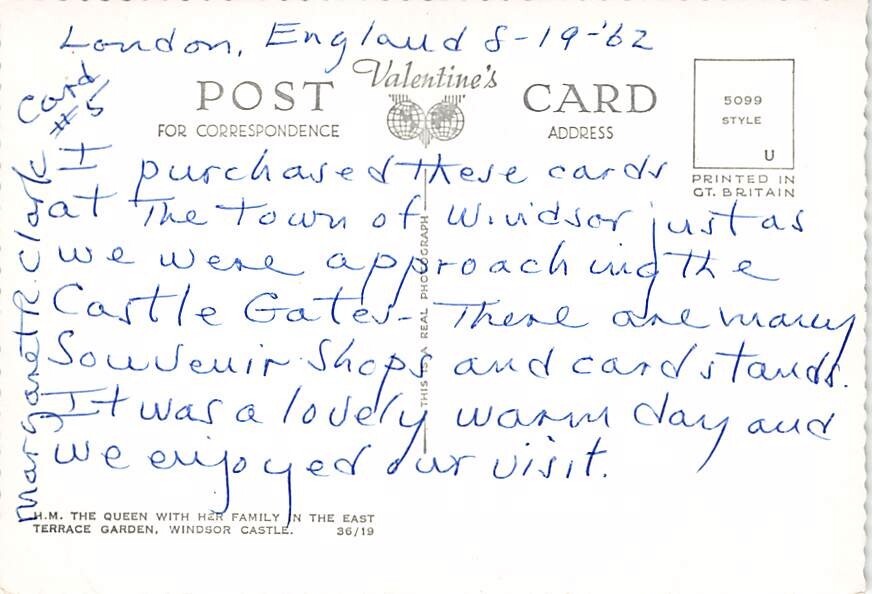 London, England 8-19-'62
Card
#5
Valentine's
POST CARD
FOR CORRESPONDENCE
ADDRESS
5099
STYLE
U
PRINTED IN
GT. BRITAIN
I purchased these cards
at the town of Windsor just as
we were approaching the
Castle Gates- There are many
Souvenir Shops and card stands.
It was a lovely warm day and
we enjoyed our visit.
Margaret R. Clark
THIS IS A REAL PHOTOGRAPH
H.M. THE QUEEN WITH HER FAMILY IN THE EAST
TERRACE GARDEN, WINDSOR CASTLE. 36/19